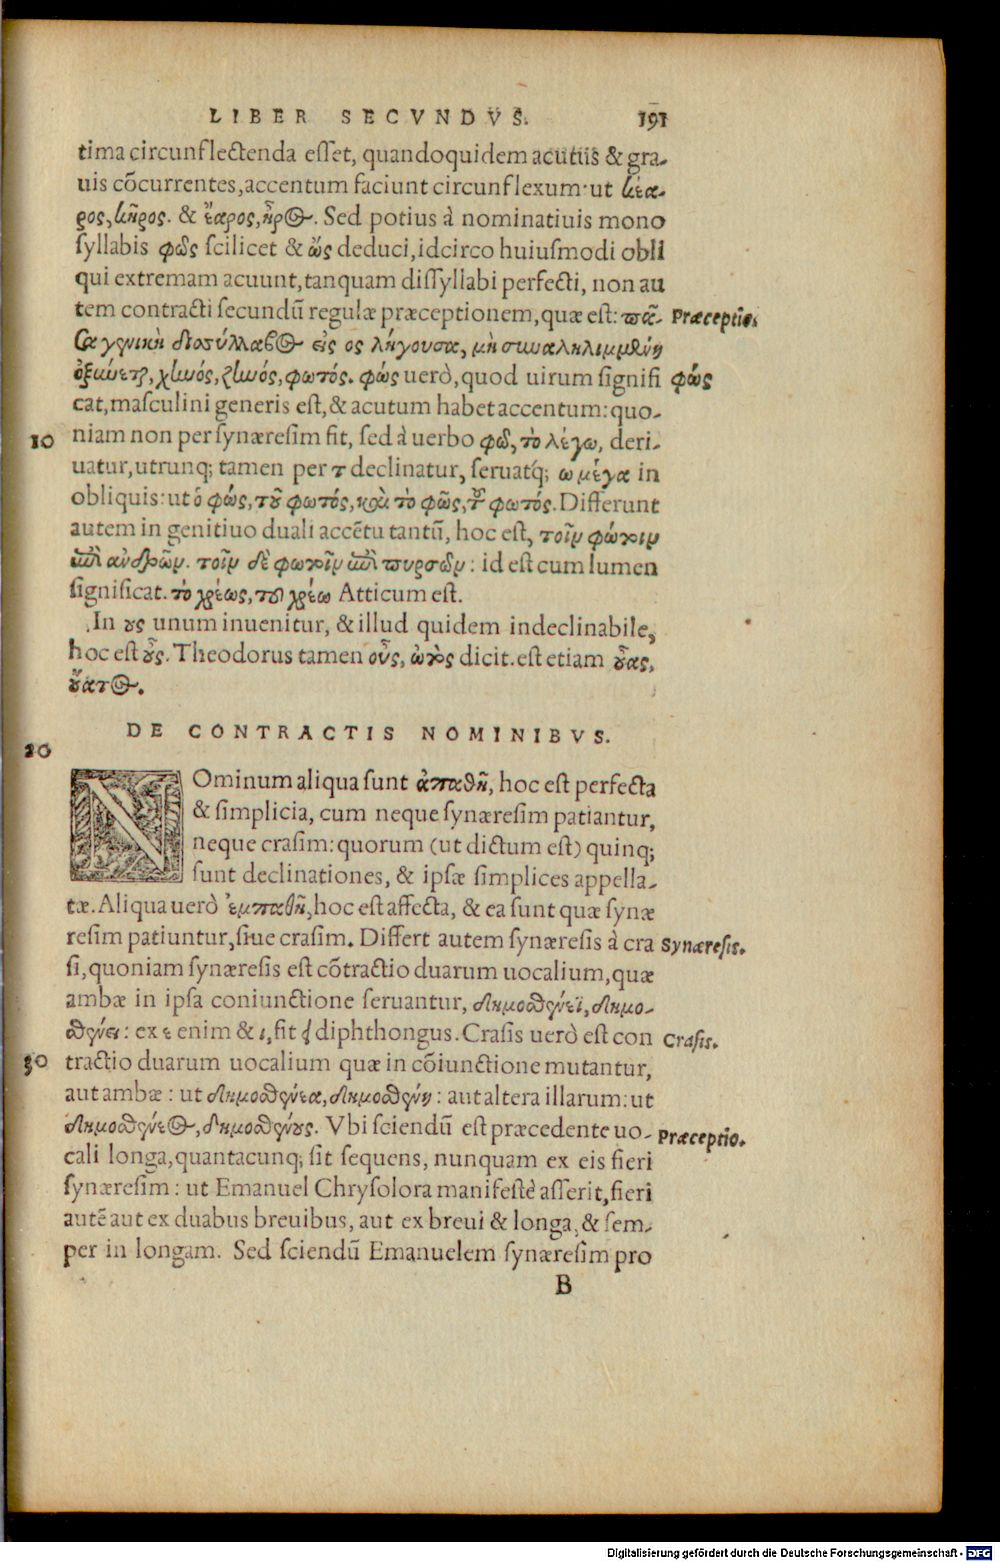 LIBER SECVNDVS. 191
tima circunflectenda esset, quandoquidem acutus & gra-
uis cõcurrentes, accentum faciunt circunflexum: ut κέα-
ρος, κῆρος. & ἔαρος, ἦρος. Sed potius à nominatiuis mono
syllabis φῶς scilicet & ὥς deduci, idcirco huiusmodi obli
qui extremam acuunt, tanquam dissyllabi perfecti, non au
tem contracti secundũ regulæ præceptionem, quæ est: πᾶ- Præceptio.
σα γενικὴ δισύλλαβος εἰς ος λήγουσα, μὴ συναληλιμμένη
ὀξύνεται, χηνός, ζηνός, φωτός. φώς uerò, quod uirum signifi φώς
cat, masculini generis est, & acutum habet accentum: quo-
10 niam non per synæresim fit, sed à uerbo φῶ, τὸ λέγω, deri-
uatur, utrunq; tamen per τ declinatur, seruatq́; ω μέγα in
obliquis: ut ὁ φώς, τοῦ φωτός, καὶ τὸ φῶς, τοῦ φωτός. Differunt
autem in genitiuo duali accẽtu tantũ, hoc est, τοῖν φώτοιν
ἐπὶ ἀνδρῶν. τοῖν δὲ φωτοῖν ἐπὶ πυρσῶν: id est cum lumen
significat. τὸ χρέως, τοῦ χρέω Atticum est.
In ους unum inuenitur, & illud quidem indeclinabile,
hoc est οὖς. Theodorus tamen οὖς, ὠτὸς dicit. est etiam οὖας,
οὔατος.
DE CONTRACTIS NOMINIBVS.
20
NOminum aliqua sunt ἀπαθῆ, hoc est perfecta
& simplicia, cum neque synæresim patiantur,
neque crasim: quorum (ut dictum est) quinq;
sunt declinationes, & ipsæ simplices appella-
tæ. Aliqua uerò ἐμπαθῆ, hoc est affecta, & ea sunt quæ synæ
resim patiuntur, siue crasim. Differt autem synæresis à cra Synæresis.
si, quoniam synæresis est cõtractio duarum uocalium, quæ
ambæ in ipsa coniunctione seruantur, δημοσθένεϊ, δημο-
σθένει: ex ε enim & ι, fit ει diphthongus. Crasis uerò est con Crasis.
30 tractio duarum uocalium quæ in cõiunctione mutantur,
aut ambæ: ut δημοσθένεα, δημοσθένη: aut altera illarum: ut
δημοσθένεος, δημοσθένους. Vbi sciendũ est præcedente uo- Præceptio.
cali longa, quantacunq; sit sequens, nunquam ex eis fieri
synæresim: ut Emanuel Chrysolora manifestè asserit, fieri
autẽ aut ex duabus breuibus, aut ex breui & longa, & sem-
per in longam. Sed sciendũ Emanuelem synæresim pro
B
Digitalisierung gefördert durch die Deutsche Forschungsgemeinschaft - DFG